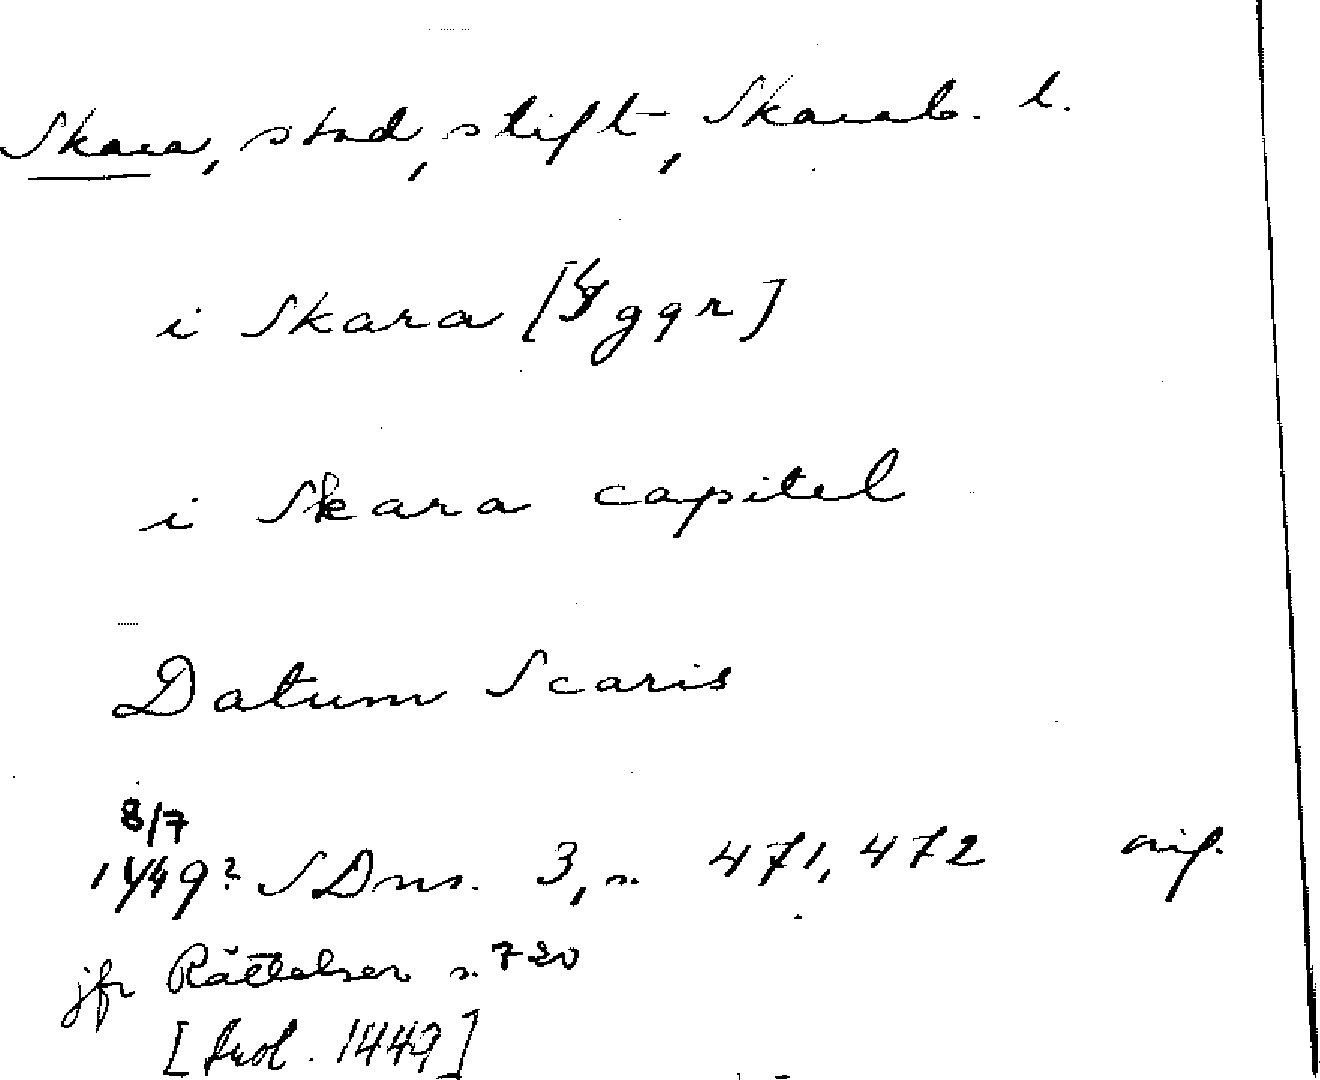 Skara, stad, stift, Skarab. l.
i Skara [4 ggr]
i Skara capitel
Datum Scaris
8/7
1449? SDns. 3, s. 471, 472 orig.
jfr Rättelser s. 720
[trol. 1449]